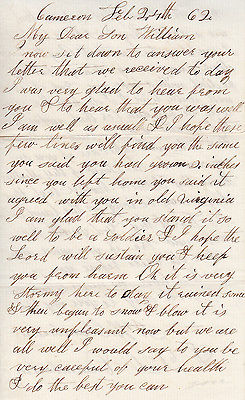 Cameron Feb 24th 62
My Dear Son William
now set down to answer your
letter that we received to day
I was very glad to hear from
you & to hear that you was well
I am well as usual & I hope these
few lines will find you the same
you said you had grown 2 inches
since you left home you said it
agreed with you in old Virginia
I am glad that you stand it so
well to be a Soldier & I hope the
Lord will sustain you & keep
you from harm Oh it is very
stormy here to day it rained some
& then began to snow & blow it is
very unpleasant now but we are
all well I would say to you be
very careful of your health
& do the best you can